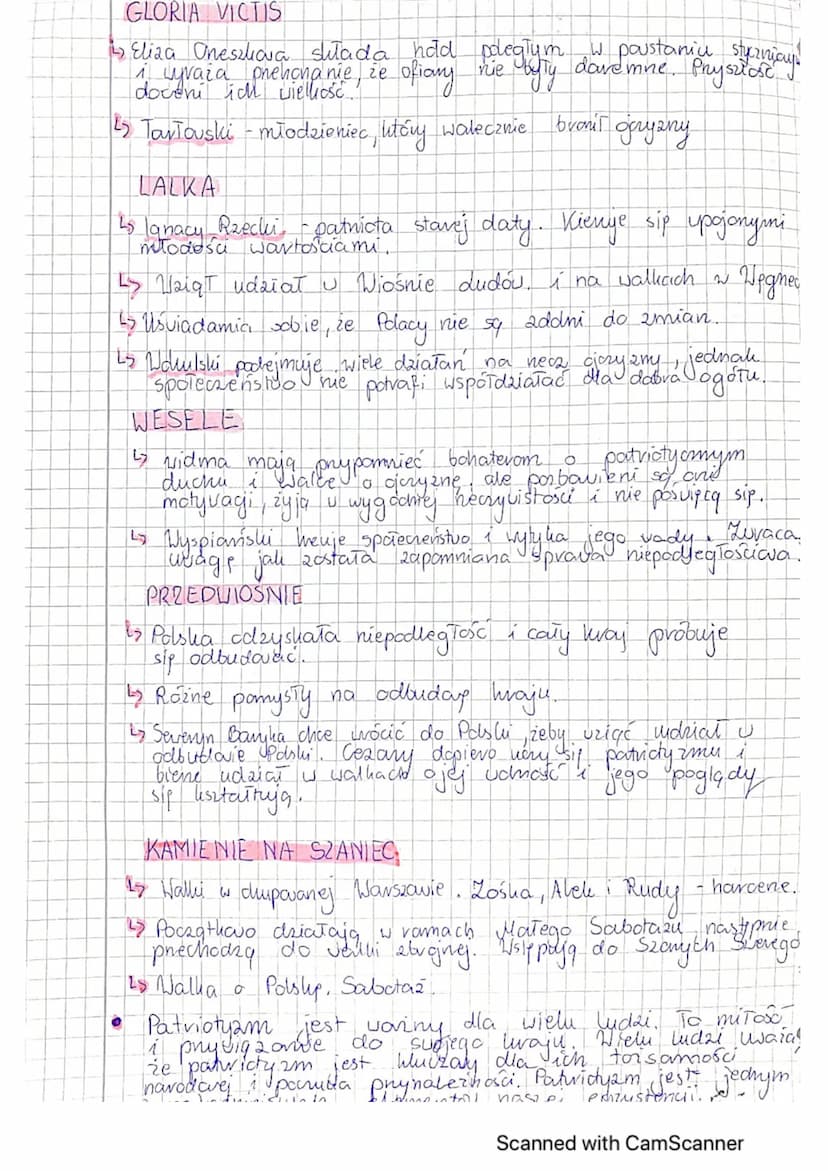 GLORIA VICTIS
↳ Eliza Orzeszkowa składa hołd poległym w powstaniu styczniowym
i wyraża przekonanie, że ofiary nie były daremne. Przyszłość
doceni ich wielkość.
↳ Tarłowski - młodzieniec, który walecznie bronił ojczyzny
LALKA
↳ Ignacy Rzecki - patriota starej daty. Kieruje się wpojonymi
młodości wartościami.
↳ Wziął udział w Wiośnie Ludów. i na walkach w Węgrzec
↳ Uświadamia sobie, że Polacy nie są zdolni do zmian.
↳ Wokulski podejmuje wiele działań na rzecz ojczyzny, jednak
społeczeństwo nie potrafi współdziałać dla dobra ogółu.
WESELE
↳ widma mają przypomnieć bohaterom o patriotycznym
duchu i walce o ojczyznę, ale pozbawieni są oni
motywacji, żyją w wygodnej rzeczywistości i nie poświęcą się.
↳ Wyspiański kreuje społeczeństwo i wytyka jego wady. Zwraca
uwagę jak została zapomniana sprawa niepodległościowa.
PRZEDWIOŚNIE
↳ Polska odzyskała niepodległość i cały kraj próbuje
się odbudować.
↳ Różne pomysły na odbudowę kraju.
↳ Seweryn Baryka chce wrócić do Polski, żeby wziąć udział w
odbudowie Polski. Cezary dopiero uczy się patriotyzmu i
bierze udział w walkach o jej wolność i jego poglądy
się kształtują.
KAMIENIE NA SZANIEC
↳ Walki w okupowanej Warszawie. Zośka, Alek i Rudy - harcerze.
↳ Początkowo działają w ramach Małego Sabotażu, następnie
przechodzą do walki zbrojnej. Wstępują do Szarych Szeregó
↳ Walka o Polskę. Sabotaż.
• Patriotyzm jest ważny dla wielu ludzi. To miłość
i przywiązanie do swojego kraju. Wielu ludzi uważa
że patriotyzm jest kluczowy dla ich tożsamości
narodowej i poczucia przynależności. Patriotyzm jest jednym
naszej egzystencji.
Scanned with CamScanner